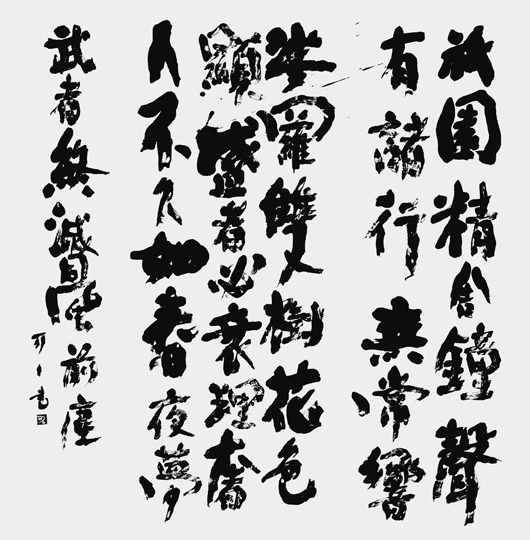 祇園精舍鐘聲
有諸行無常響
娑羅雙樹花色
顯盛者必衰理奢
人不久如春夜夢
武者終滅同風前塵